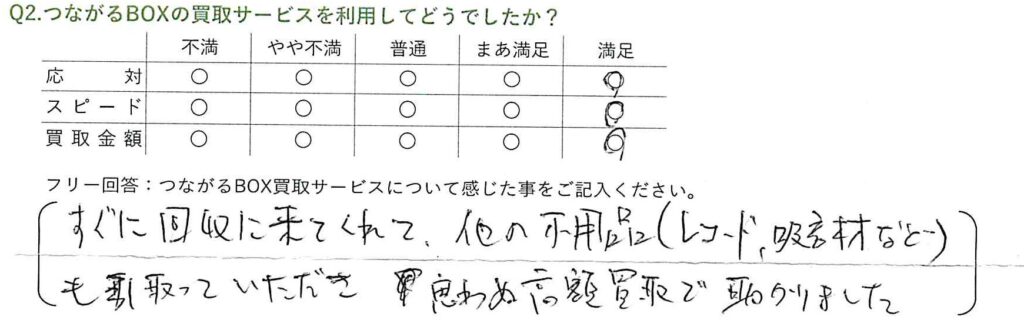 Q2.つながるBOXの買取サービスを利用してどうでしたか？
不満 やや不満 普通 まあ満足 満足
応対 ○ ○ ○ ○ ○
スピード ○ ○ ○ ○ ○
買取金額 ○ ○ ○ ○ ○
フリー回答：つながるBOX買取サービスについて感じた事をご記入ください。
(すぐに回収に来てくれて、他の不用品(レコード、吸音材など)
も引取っていただき 思わぬ高額買取で助かりました)